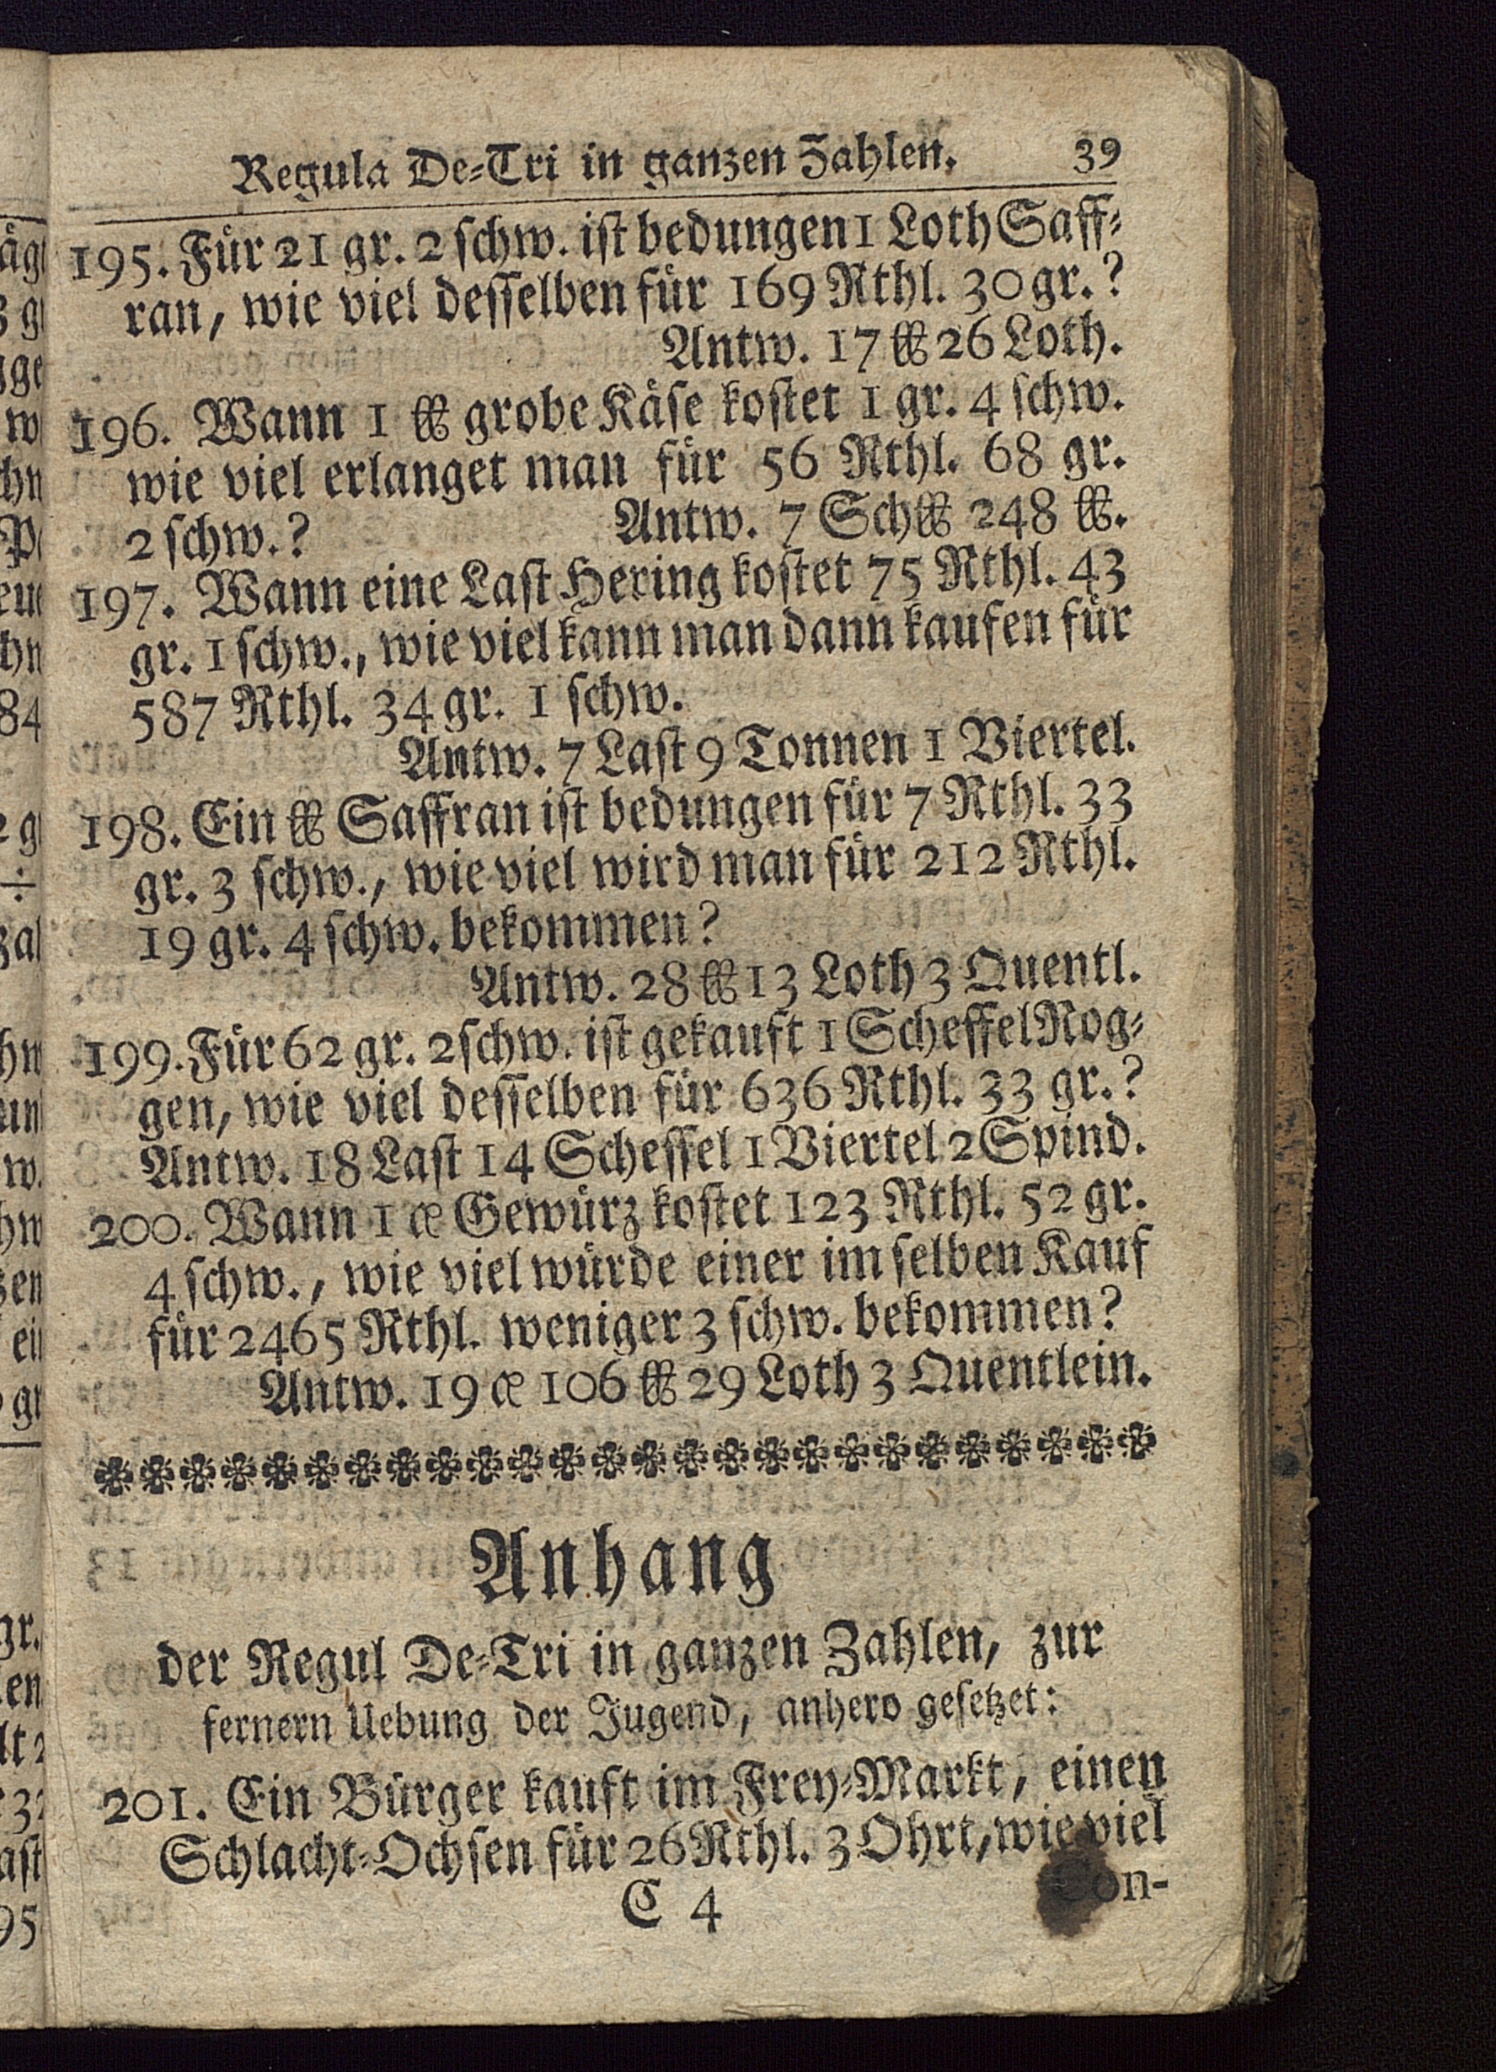 Regula De-Tri in ganzen Zahlen. 39
195. Für 21 gr. 2 schw. ist bedungen 1 Loth Saff-
ran, wie viel desselben für 169 Rthl. 30 gr.?
Antw. 17 ℔ 26 Loth.
196. Wann 1 ℔ grobe Käse kostet 1 gr. 4 schw.
wie viel erlanget man für 56 Rthl. 68 gr.
2 schw.? Antw. 7 Sch℔ 248 ℔.
197. Wann eine Last Hering kostet 75 Rthl. 43
gr. 1 schw., wie viel kann man dann kaufen für
587 Rthl. 34 gr. 1 schw.
Antw. 7 Last 9 Tonnen 1 Viertel.
198. Ein ℔ Saffran ist bedungen für 7 Rthl. 33
gr. 3 schw., wie viel wird man für 212 Rthl.
19 gr. 4 schw. bekommen?
Antw. 28 ℔ 13 Loth 3 Quentl.
199. Für 62 gr. 2 schw. ist gekauft 1 Scheffel Rog-
gen, wie viel desselben für 636 Rthl. 33 gr.?
Antw. 18 Last 14 Scheffel 1 Viertel 2 Spind.
200. Wann 1 æ Gewürz kostet 123 Rthl. 52 gr.
4 schw., wie viel würde einer im selben Kauf
für 2465 Rthl. weniger 3 schw. bekommen?
Antw. 19 æ 106 ℔ 29 Loth 3 Quentlein.
Anhang
der Regul De-Tri in ganzen Zahlen, zur
fernern Uebung der Jugend, anhero gesetzet:
201. Ein Bürger kauft im Frey-Markt, einen
Schlacht-Ochsen für 26 Rthl. 3 Ohrt, wie viel
C 4 Son-